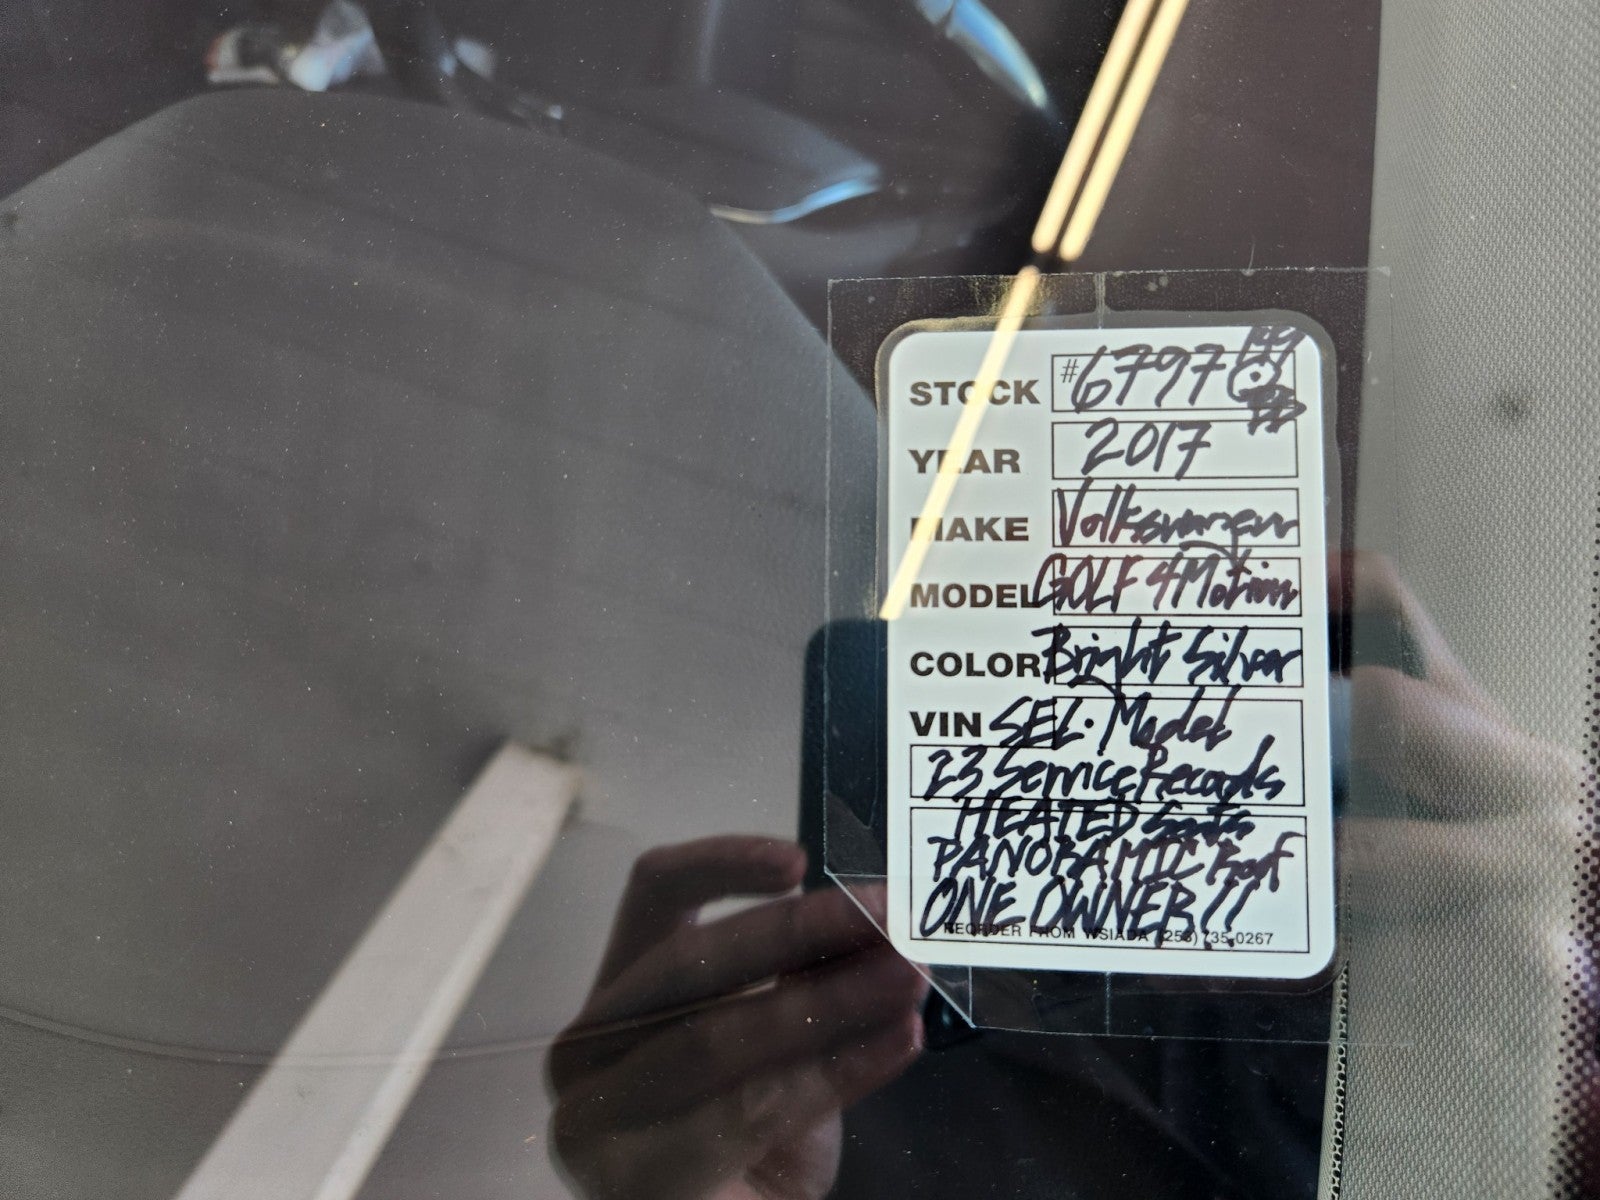 STOCK #6797
YEAR 2017
MAKE Volkswagen
MODEL GOLF 4Motion
COLOR Bright Silver
VIN SEL. Model
23 Service Records
HEATED Seats
PANORAMIC Roof
ONE OWNER!!
REORDER FROM WSIADA (253) 735-0267